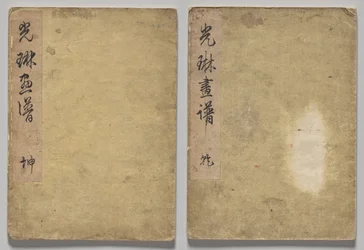 光琳畫譜 乾
光琳画譜 坤